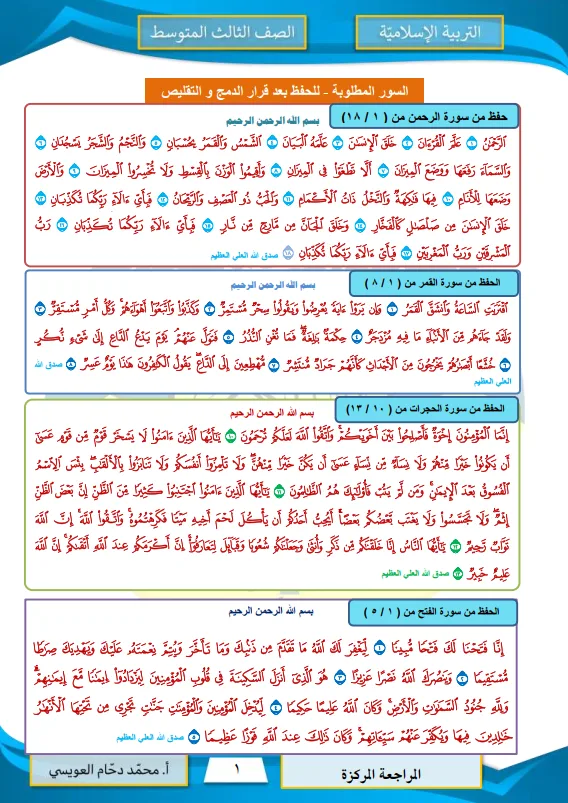 التربية الإسلامية
الصف الثالث المتوسط
السور المطلوبة - للحفظ بعد قرار الدمج و التقليص
حفظ من سورة الرحمن من (١ / ١٨)
بسم الله الرحمن الرحيم
الرَّحْمَٰنُ ١ عَلَّمَ الْقُرْءَانَ ٢ خَلَقَ الْإِنسَٰنَ ٣ عَلَّمَهُ الْبَيَانَ ٤ الشَّمْسُ وَالْقَمَرُ بِحُسْبَانٍ ٥ وَالنَّجْمُ وَالشَّجَرُ يَسْجُدَانِ ٦
وَالسَّمَاءَ رَفَعَهَا وَوَضَعَ الْمِيزَانَ ٧ أَلَّا تَطْغَوْا فِي الْمِيزَانِ ٨ وَأَقِيمُوا الْوَزْنَ بِالْقِسْطِ وَلَا تُخْسِرُوا الْمِيزَانَ ٩ وَالْأَرْضَ
وَضَعَهَا لِلْأَنَامِ ١٠ فِيهَا فَٰكِهَةٌ وَالنَّخْلُ ذَاتُ الْأَكْمَامِ ١١ وَالْحَبُّ ذُو الْعَصْفِ وَالرَّيْحَانُ ١٢ فَبِأَيِّ ءَالَاءِ رَبِّكُمَا تُكَذِّبَانِ ١٣
خَلَقَ الْإِنسَٰنَ مِن صَلْصَٰلٍ كَالْفَخَّارِ ١٤ وَخَلَقَ الْجَانَّ مِن مَّارِجٍ مِّن نَّارٍ ١٥ فَبِأَيِّ ءَالَاءِ رَبِّكُمَا تُكَذِّبَانِ ١٦ رَبُّ
الْمَشْرِقَيْنِ وَرَبُّ الْمَغْرِبَيْنِ ١٧ فَبِأَيِّ ءَالَاءِ رَبِّكُمَا تُكَذِّبَانِ ١٨ صدق الله العلي العظيم
الحفظ من سورة القمر من (١ / ٨)
بسم الله الرحمن الرحيم
اقْتَرَبَتِ السَّاعَةُ وَانشَقَّ الْقَمَرُ ١ وَإِن يَرَوْا ءَايَةً يُعْرِضُوا وَيَقُولُوا سِحْرٌ مُّسْتَمِرٌّ ٢ وَكَذَّبُوا وَاتَّبَعُوا أَهْوَاءَهُمْ وَكُلُّ أَمْرٍ مُّسْتَقِرٌّ ٣
وَلَقَدْ جَاءَهُم مِّنَ الْأَنبَاءِ مَا فِيهِ مُزْدَجَرٌ ٤ حِكْمَةٌ بَٰلِغَةٌ فَمَا تُغْنِ النُّذُرُ ٥ فَتَوَلَّ عَنْهُمْ يَوْمَ يَدْعُ الدَّاعِ إِلَىٰ شَيْءٍ نُّكُرٍ
٦ خُشَّعًا أَبْصَٰرُهُمْ يَخْرُجُونَ مِنَ الْأَجْدَاثِ كَأَنَّهُمْ جَرَادٌ مُّنتَشِرٌ ٧ مُّهْطِعِينَ إِلَى الدَّاعِ يَقُولُ الْكَٰفِرُونَ هَٰذَا يَوْمٌ عَسِرٌ ٨ صدق الله
العلي العظيم
الحفظ من سورة الحجرات من (١٠ / ١٣)
بسم الله الرحمن الرحيم
إِنَّمَا الْمُؤْمِنُونَ إِخْوَةٌ فَأَصْلِحُوا بَيْنَ أَخَوَيْكُمْ وَاتَّقُوا اللَّهَ لَعَلَّكُمْ تُرْحَمُونَ ١٠ يَٰأَيُّهَا الَّذِينَ ءَامَنُوا لَا يَسْخَرْ قَوْمٌ مِّن قَوْمٍ عَسَىٰ
أَن يَكُونُوا خَيْرًا مِّنْهُمْ وَلَا نِسَاءٌ مِّن نِّسَاءٍ عَسَىٰ أَن يَكُنَّ خَيْرًا مِّنْهُنَّ وَلَا تَلْمِزُوا أَنفُسَكُمْ وَلَا تَنَابَزُوا بِالْأَلْقَٰبِ بِئْسَ الِاسْمُ
الْفُسُوقُ بَعْدَ الْإِيمَٰنِ وَمَن لَّمْ يَتُبْ فَأُولَٰئِكَ هُمُ الظَّٰلِمُونَ ١١ يَٰأَيُّهَا الَّذِينَ ءَامَنُوا اجْتَنِبُوا كَثِيرًا مِّنَ الظَّنِّ إِنَّ بَعْضَ الظَّنِّ
إِثْمٌ وَلَا تَجَسَّسُوا وَلَا يَغْتَب بَّعْضُكُم بَعْضًا أَيُحِبُّ أَحَدُكُمْ أَن يَأْكُلَ لَحْمَ أَخِيهِ مَيْتًا فَكَرِهْتُمُوهُ وَاتَّقُوا اللَّهَ إِنَّ اللَّهَ
تَوَّابٌ رَّحِيمٌ ١٢ يَٰأَيُّهَا النَّاسُ إِنَّا خَلَقْنَٰكُم مِّن ذَكَرٍ وَأُنثَىٰ وَجَعَلْنَٰكُمْ شُعُوبًا وَقَبَائِلَ لِتَعَارَفُوا إِنَّ أَكْرَمَكُمْ عِندَ اللَّهِ أَتْقَىٰكُمْ إِنَّ اللَّهَ
عَلِيمٌ خَبِيرٌ ١٣ صدق الله العلي العظيم
الحفظ من سورة الفتح من (١ / ٥)
بسم الله الرحمن الرحيم
إِنَّا فَتَحْنَا لَكَ فَتْحًا مُّبِينًا ١ لِّيَغْفِرَ لَكَ اللَّهُ مَا تَقَدَّمَ مِن ذَنبِكَ وَمَا تَأَخَّرَ وَيُتِمَّ نِعْمَتَهُ عَلَيْكَ وَيَهْدِيَكَ صِرَٰطًا
مُّسْتَقِيمًا ٢ وَيَنصُرَكَ اللَّهُ نَصْرًا عَزِيزًا ٣ هُوَ الَّذِي أَنزَلَ السَّكِينَةَ فِي قُلُوبِ الْمُؤْمِنِينَ لِيَزْدَادُوا إِيمَٰنًا مَّعَ إِيمَٰنِهِمْ
وَلِلَّهِ جُنُودُ السَّمَٰوَٰتِ وَالْأَرْضِ وَكَانَ اللَّهُ عَلِيمًا حَكِيمًا ٤ لِّيُدْخِلَ الْمُؤْمِنِينَ وَالْمُؤْمِنَٰتِ جَنَّٰتٍ تَجْرِي مِن تَحْتِهَا الْأَنْهَٰرُ
خَٰلِدِينَ فِيهَا وَيُكَفِّرَ عَنْهُمْ سَيِّئَاتِهِمْ وَكَانَ ذَٰلِكَ عِندَ اللَّهِ فَوْزًا عَظِيمًا ٥ صدق الله العلي العظيم
المراجعة المركزة
١
أ. محمّد دحّام العويسي